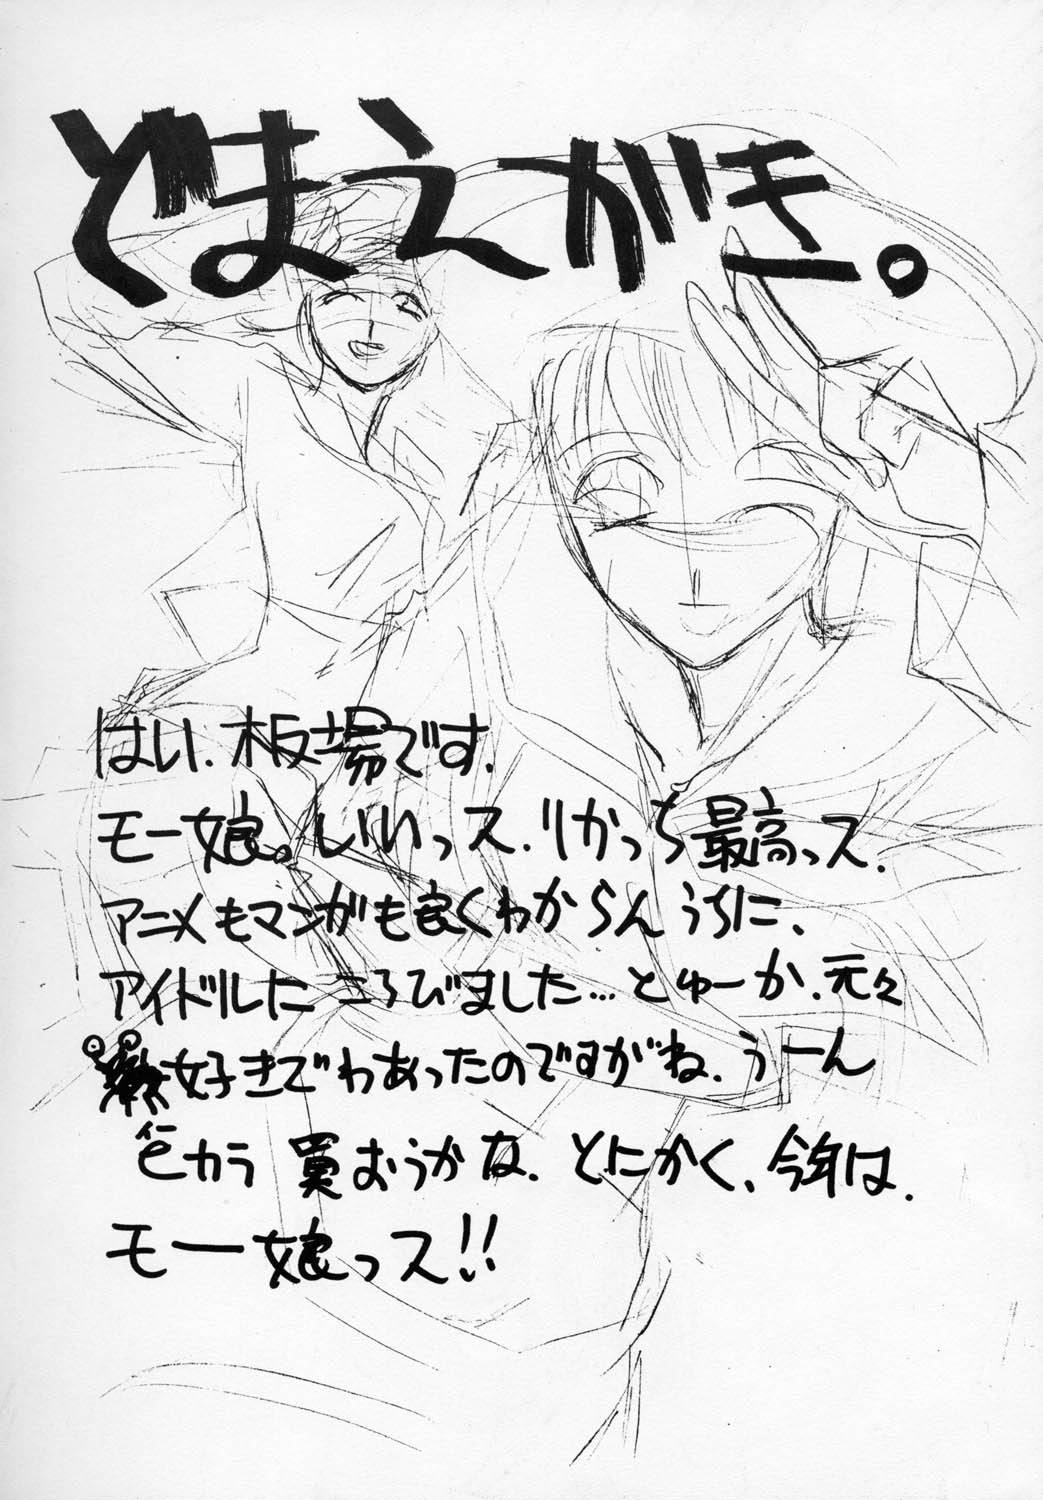 どまえがき。
はい、板場です、
モー娘。いいっス、りかっち最高っス、
アニメもマンガも良くわからんうちに、
アイドルにころびました…とゅーか、元々
好きでわあったのですがね、うーん
色カラ買おうかな、とにかく、今年は、
モー娘っス!!